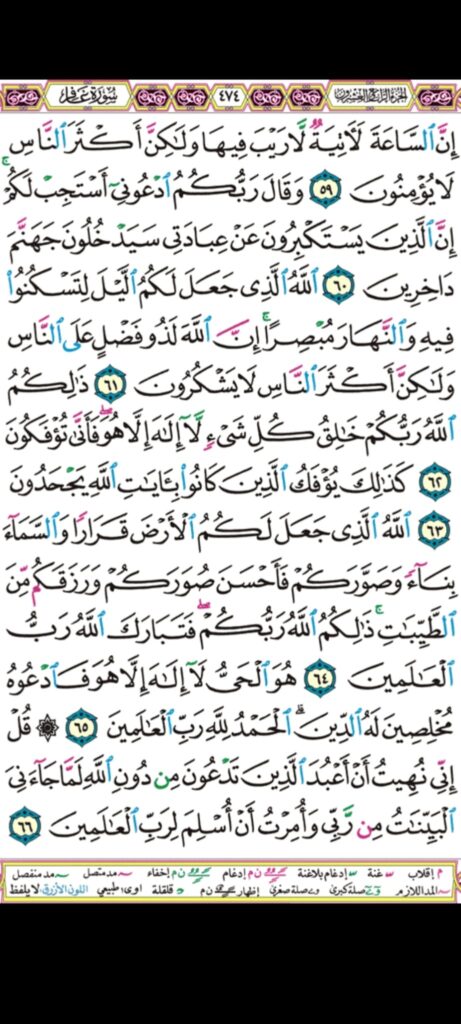 سورة غافر ٤٧٤ الجزء الرابع والعشرون
إِنَّ ٱلسَّاعَةَ لَأٓتِيَةٌ لَّا رَيْبَ فِيهَا وَلَٰكِنَّ أَكْثَرَ ٱلنَّاسِ
لَا يُؤْمِنُونَ ٥٩ وَقَالَ رَبُّكُمُ ٱدْعُونِىٓ أَسْتَجِبْ لَكُمْ ۚ
إِنَّ ٱلَّذِينَ يَسْتَكْبِرُونَ عَنْ عِبَادَتِى سَيَدْخُلُونَ جَهَنَّمَ
دَاخِرِينَ ٦٠ ٱللَّهُ ٱلَّذِى جَعَلَ لَكُمُ ٱلَّيْلَ لِتَسْكُنُوا۟
فِيهِ وَٱلنَّهَارَ مُبْصِرًا ۚ إِنَّ ٱللَّهَ لَذُو فَضْلٍ عَلَى ٱلنَّاسِ
وَلَٰكِنَّ أَكْثَرَ ٱلنَّاسِ لَا يَشْكُرُونَ ٦١ ذَٰلِكُمُ
ٱللَّهُ رَبُّكُمْ خَٰلِقُ كُلِّ شَىْءٍ لَّآ إِلَٰهَ إِلَّا هُوَ ۖ فَأَنَّىٰ تُؤْفَكُونَ
٦٢ كَذَٰلِكَ يُؤْفَكُ ٱلَّذِينَ كَانُوا۟ بِـَٔايَٰتِ ٱللَّهِ يَجْحَدُونَ
٦٣ ٱللَّهُ ٱلَّذِى جَعَلَ لَكُمُ ٱلْأَرْضَ قَرَارًا وَٱلسَّمَآءَ
بِنَآءً وَصَوَّرَكُمْ فَأَحْسَنَ صُوَرَكُمْ وَرَزَقَكُم مِّنَ
ٱلطَّيِّبَٰتِ ۚ ذَٰلِكُمُ ٱللَّهُ رَبُّكُمْ ۖ فَتَبَارَكَ ٱللَّهُ رَبُّ
ٱلْعَٰلَمِينَ ٦٤ هُوَ ٱلْحَىُّ لَآ إِلَٰهَ إِلَّا هُوَ فَٱدْعُوهُ
مُخْلِصِينَ لَهُ ٱلدِّينَ ۗ ٱلْحَمْدُ لِلَّهِ رَبِّ ٱلْعَٰلَمِينَ ٦٥ ۞ قُلْ
إِنِّى نُهِيتُ أَنْ أَعْبُدَ ٱلَّذِينَ تَدْعُونَ مِن دُونِ ٱللَّهِ لَمَّا جَآءَنِىَ
ٱلْبَيِّنَٰتُ مِن رَّبِّى وَأُمِرْتُ أَنْ أُسْلِمَ لِرَبِّ ٱلْعَٰلَمِينَ ٦٦
م إقلاب غنة إدغام بلاغنة ن م إدغام ن م إخفاء مد متصل مد منفصل
المد اللازم صلة كبرى صلة صغرى إظهار ن م قلقلة اوى: طبيعي اللون الأزرق: لا يلفظ